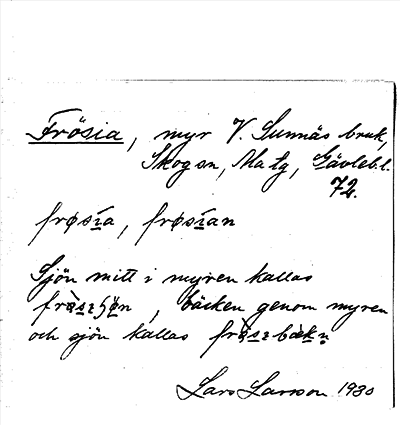 Frösia, myr V. Sunnäs bruk,
Skogsn, Matg, Gävleb.l.
72.
frøsía, frøsían
Sjön mitt i myren kallas
bäcken genom myren
och sjön kallas
Lars Larsson 1930